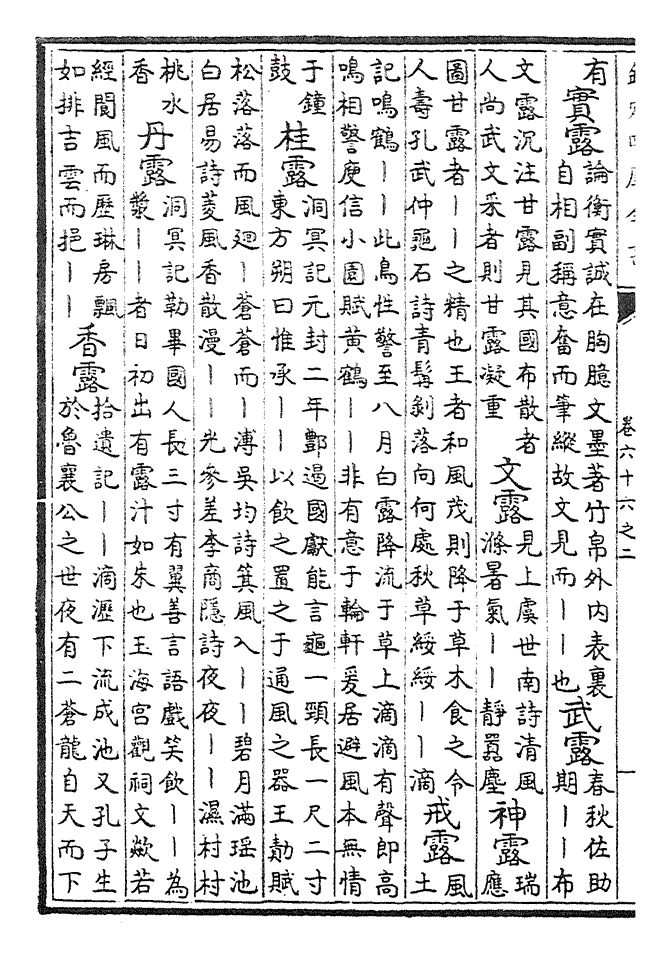 欽定四庫全書
卷六十六之二
有
實露
論衡實誠在胸臆文墨著竹帛外内表裏
自相副稱意奮而筆縱故文見而丨丨也
武露
春秋佐助
期丨丨布
文露沉注甘露見其國布散者
人尚武文采者則甘露凝重
文露
見上虞世南詩清風
滌暑氣丨丨靜嚻塵
神露
瑞
應
圖甘露者丨丨之精也王者和風茂則降于草木食之令
人壽孔武仲龜石詩青髯剝落向何處秋草綏綏丨丨滴
戒露
風
土
記鳴鶴丨丨此鳥性警至八月白露降流于草上滴滴有聲即高
鳴相警庾信小園賦黄鶴丨丨非有意于輪軒爰居避風本無情
于鐘
鼓
桂露
洞冥記元封二年鄷過國獻能言龜一頭長一尺二寸
東方朔曰惟承丨丨以飲之置之于通風之器王勣賦
松落落而風廻丨蒼蒼而丨溥吳均詩箕風入丨丨碧月滿瑶池
白居易詩菱風香散漫丨丨光參差李商隱詩夜夜丨丨濕村村
桃水
香
丹露
洞冥記勒畢國人長三寸有翼善言語戲笑飲丨丨為
漿丨丨者日初出有露汁如朱也玉海宫觀祠文歘若
經閬風而歷琳房飄
如排吉雲而挹丨丨
香露
拾遺記丨丨滴瀝下流成池又孔子生
於魯襄公之世夜有二蒼龍自天而下